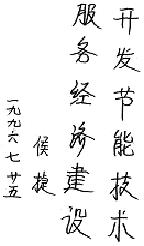 开发节能技术
服务经济建设
侯捷
一九九六七廿五